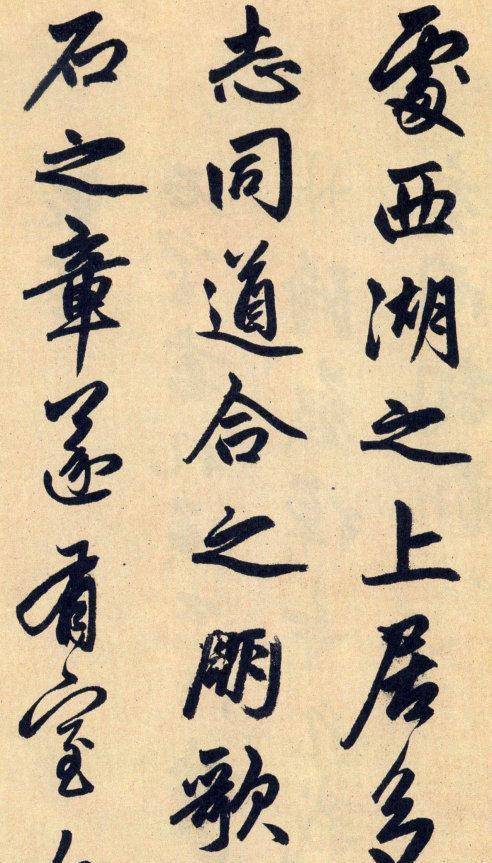 處西湖之上居多
志同道合之朋歌
石之章遂有室